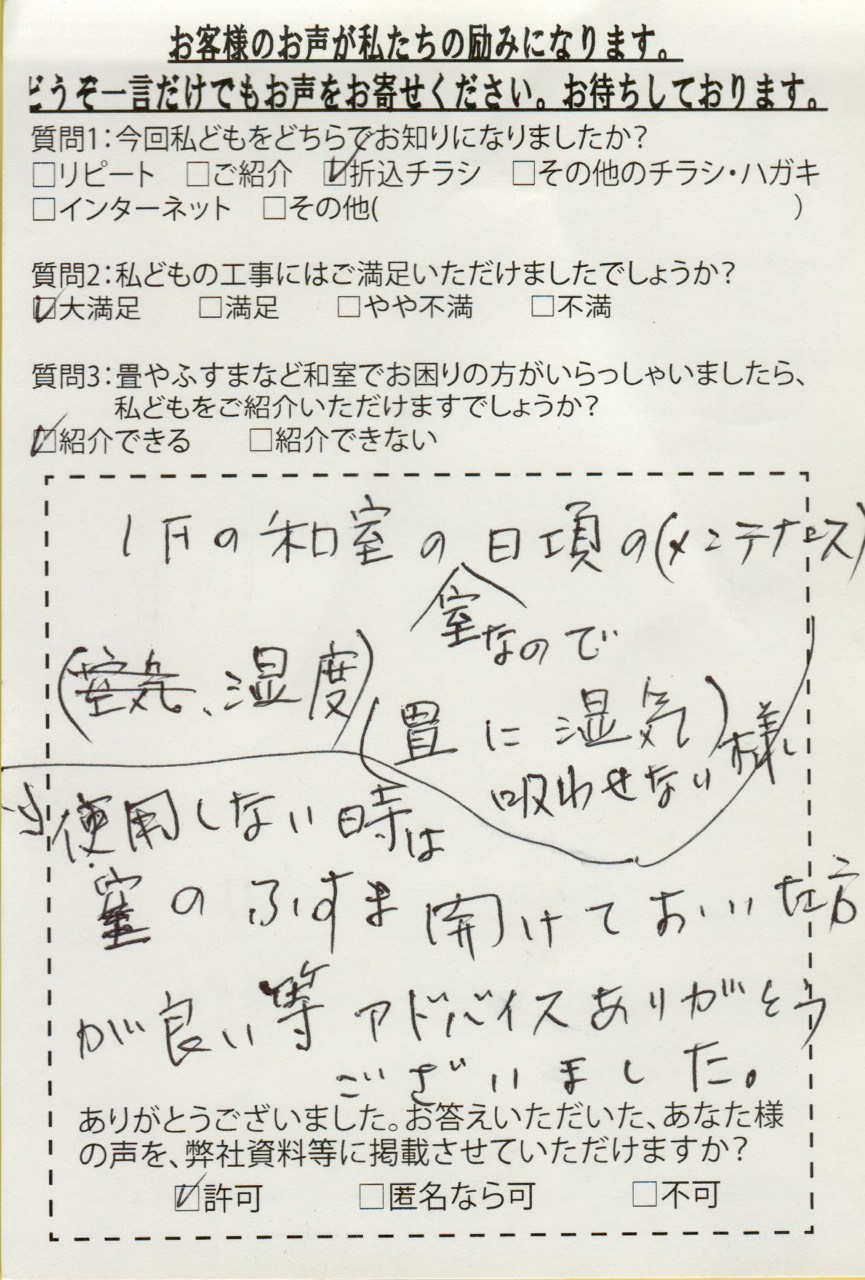 お客様のお声が私たちの励みになります。
どうぞ一言だけでもお声をお寄せください。お待ちしております。
質問1：今回私どもをどちらでお知りになりましたか？
□リピート □ご紹介 ☑折込チラシ □その他のチラシ・ハガキ
□インターネット □その他( )
質問2：私どもの工事にはご満足いただけましたでしょうか？
☑大満足 □満足 □やや不満 □不満
質問3：畳やふすまなど和室でお困りの方がいらっしゃいましたら、
私どもをご紹介いただけますでしょうか？
☑紹介できる □紹介できない
1Fの和室の日頃の(メンテナンス)
室なので
(空気、湿度)
(畳に湿気)
吸わせない様
使用しない時は
室のふすま開けておいた方
が良い等アドバイスありがとう
ございました。
ありがとうございました。お答えいただいた、あなた様
の声を、弊社資料等に掲載させていただけますか？
☑許可 □匿名なら可 □不可